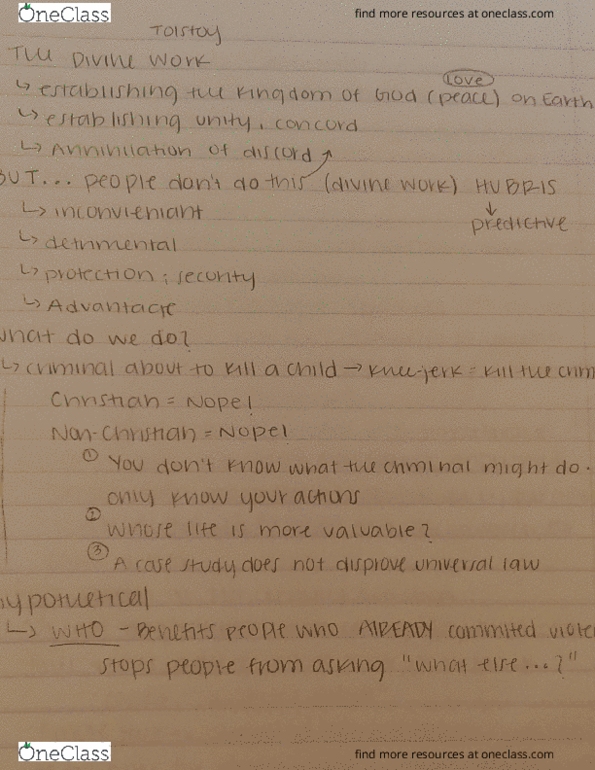 OneClass
find more resources at oneclass.com
Tolstoy
THE DIVINE WORK
love
↳ establishing the kingdom of God (peace) on Earth
↳ establishing unity, concord
↳ Annihilation of discord
BUT... people don't do this (divine work) HUBRIS
↳ inconvieniant
↓
predictive
↳ detrimental
↳ protection; security
↳ Advantage
what do we do?
↳ criminal about to kill a child → knee-jerk = kill the crim
Christian = Nope!
Non-Christian = Nope!
① You don't know what the criminal might do.
only know your actions
② Whose life is more valuable?
③ A case study does not disprove universal law
hypothetical
↳ WHO - Benefits people who AlREADY commited viole
stops people from asking "what else...?"
OneClass
find more resources at oneclass.com